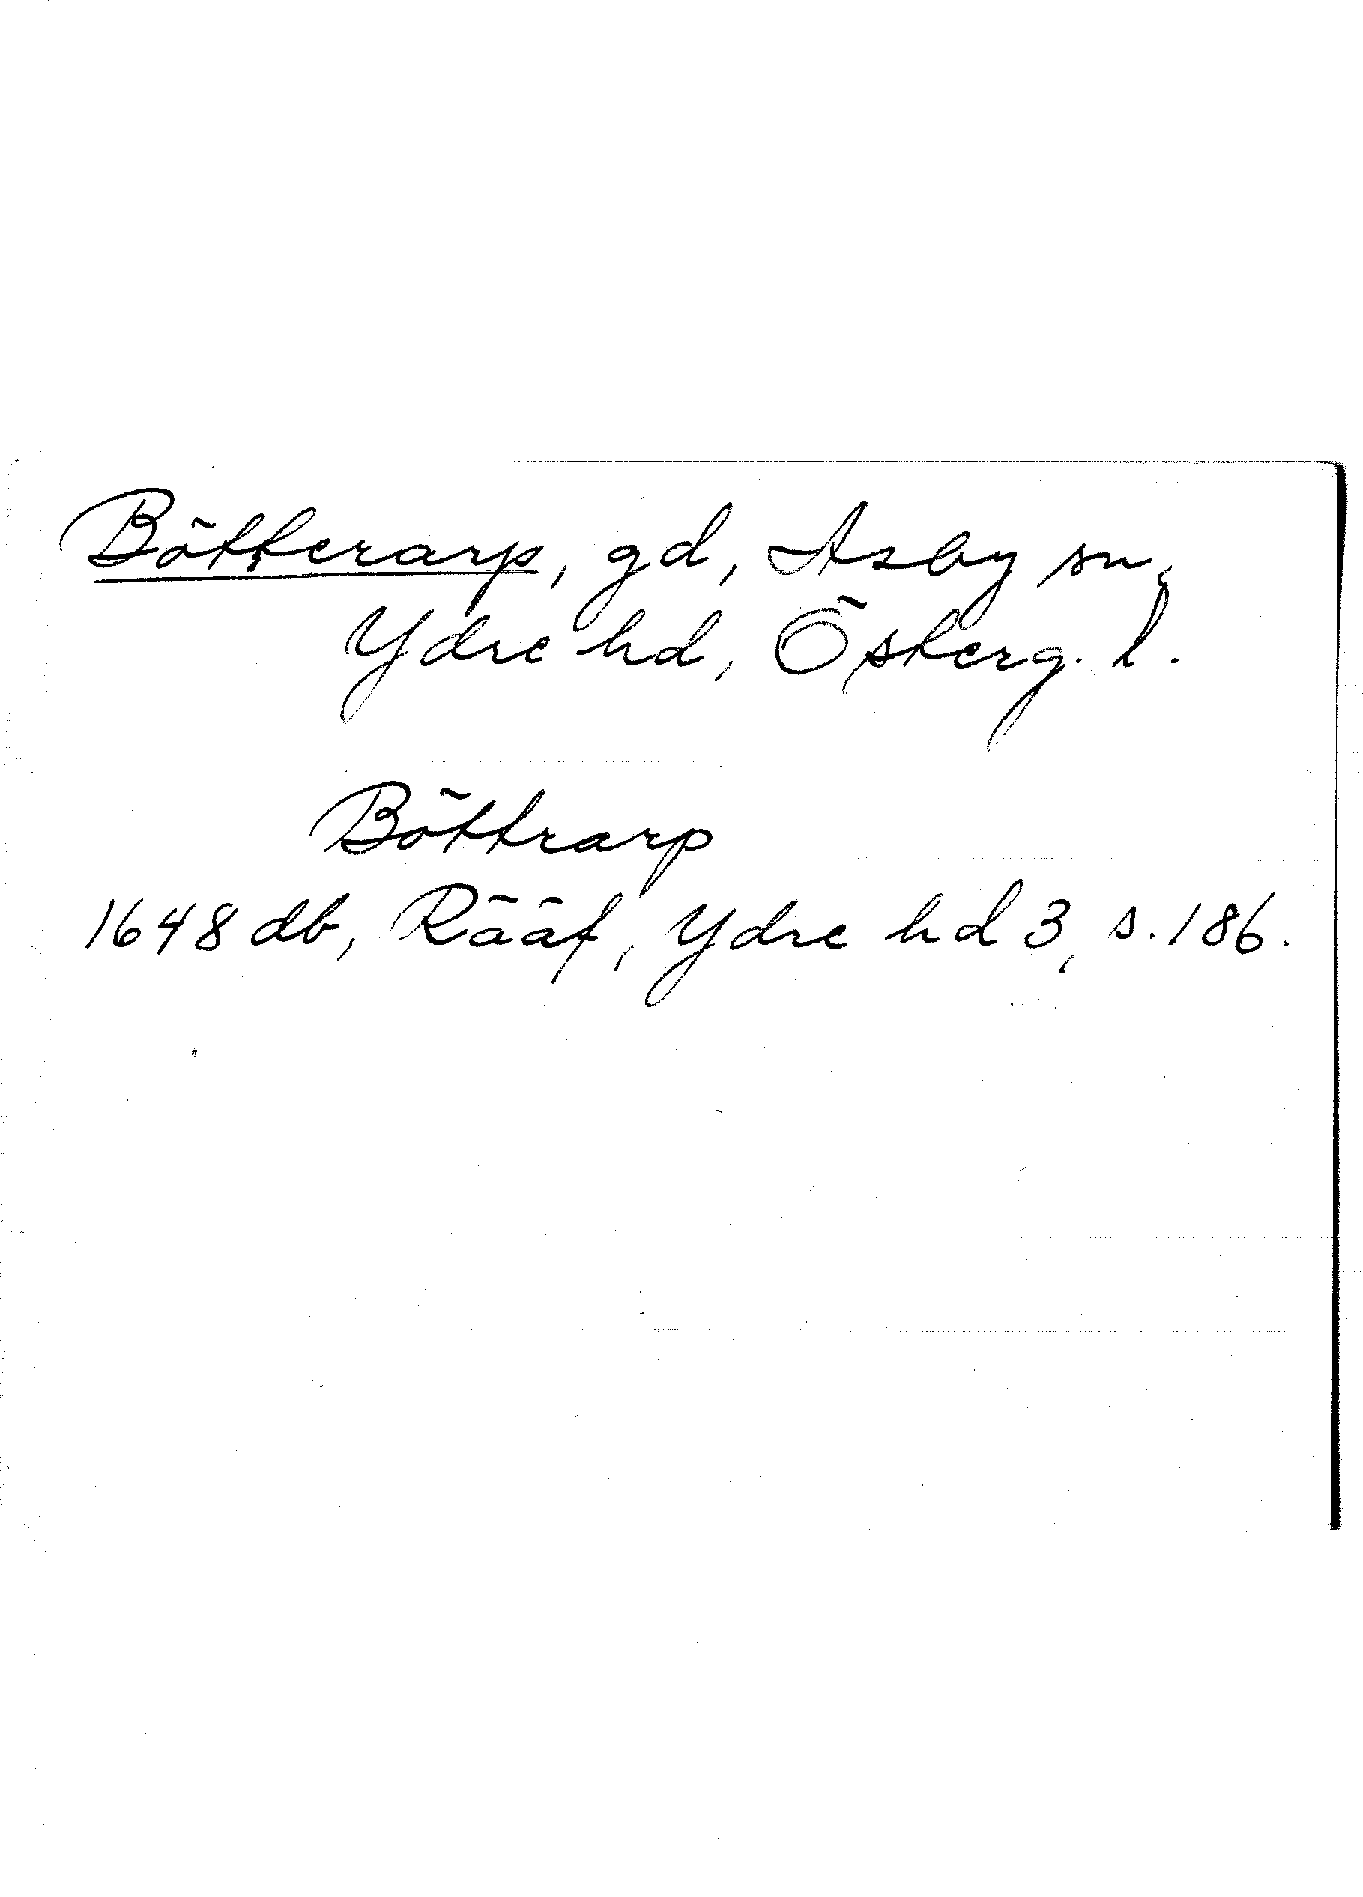 Bötterarp, gd, Asby sn,
Ydre hd, Österg. l.
Böttrarp
1648 db, Rääf, Ydre hd 3, s. 186.